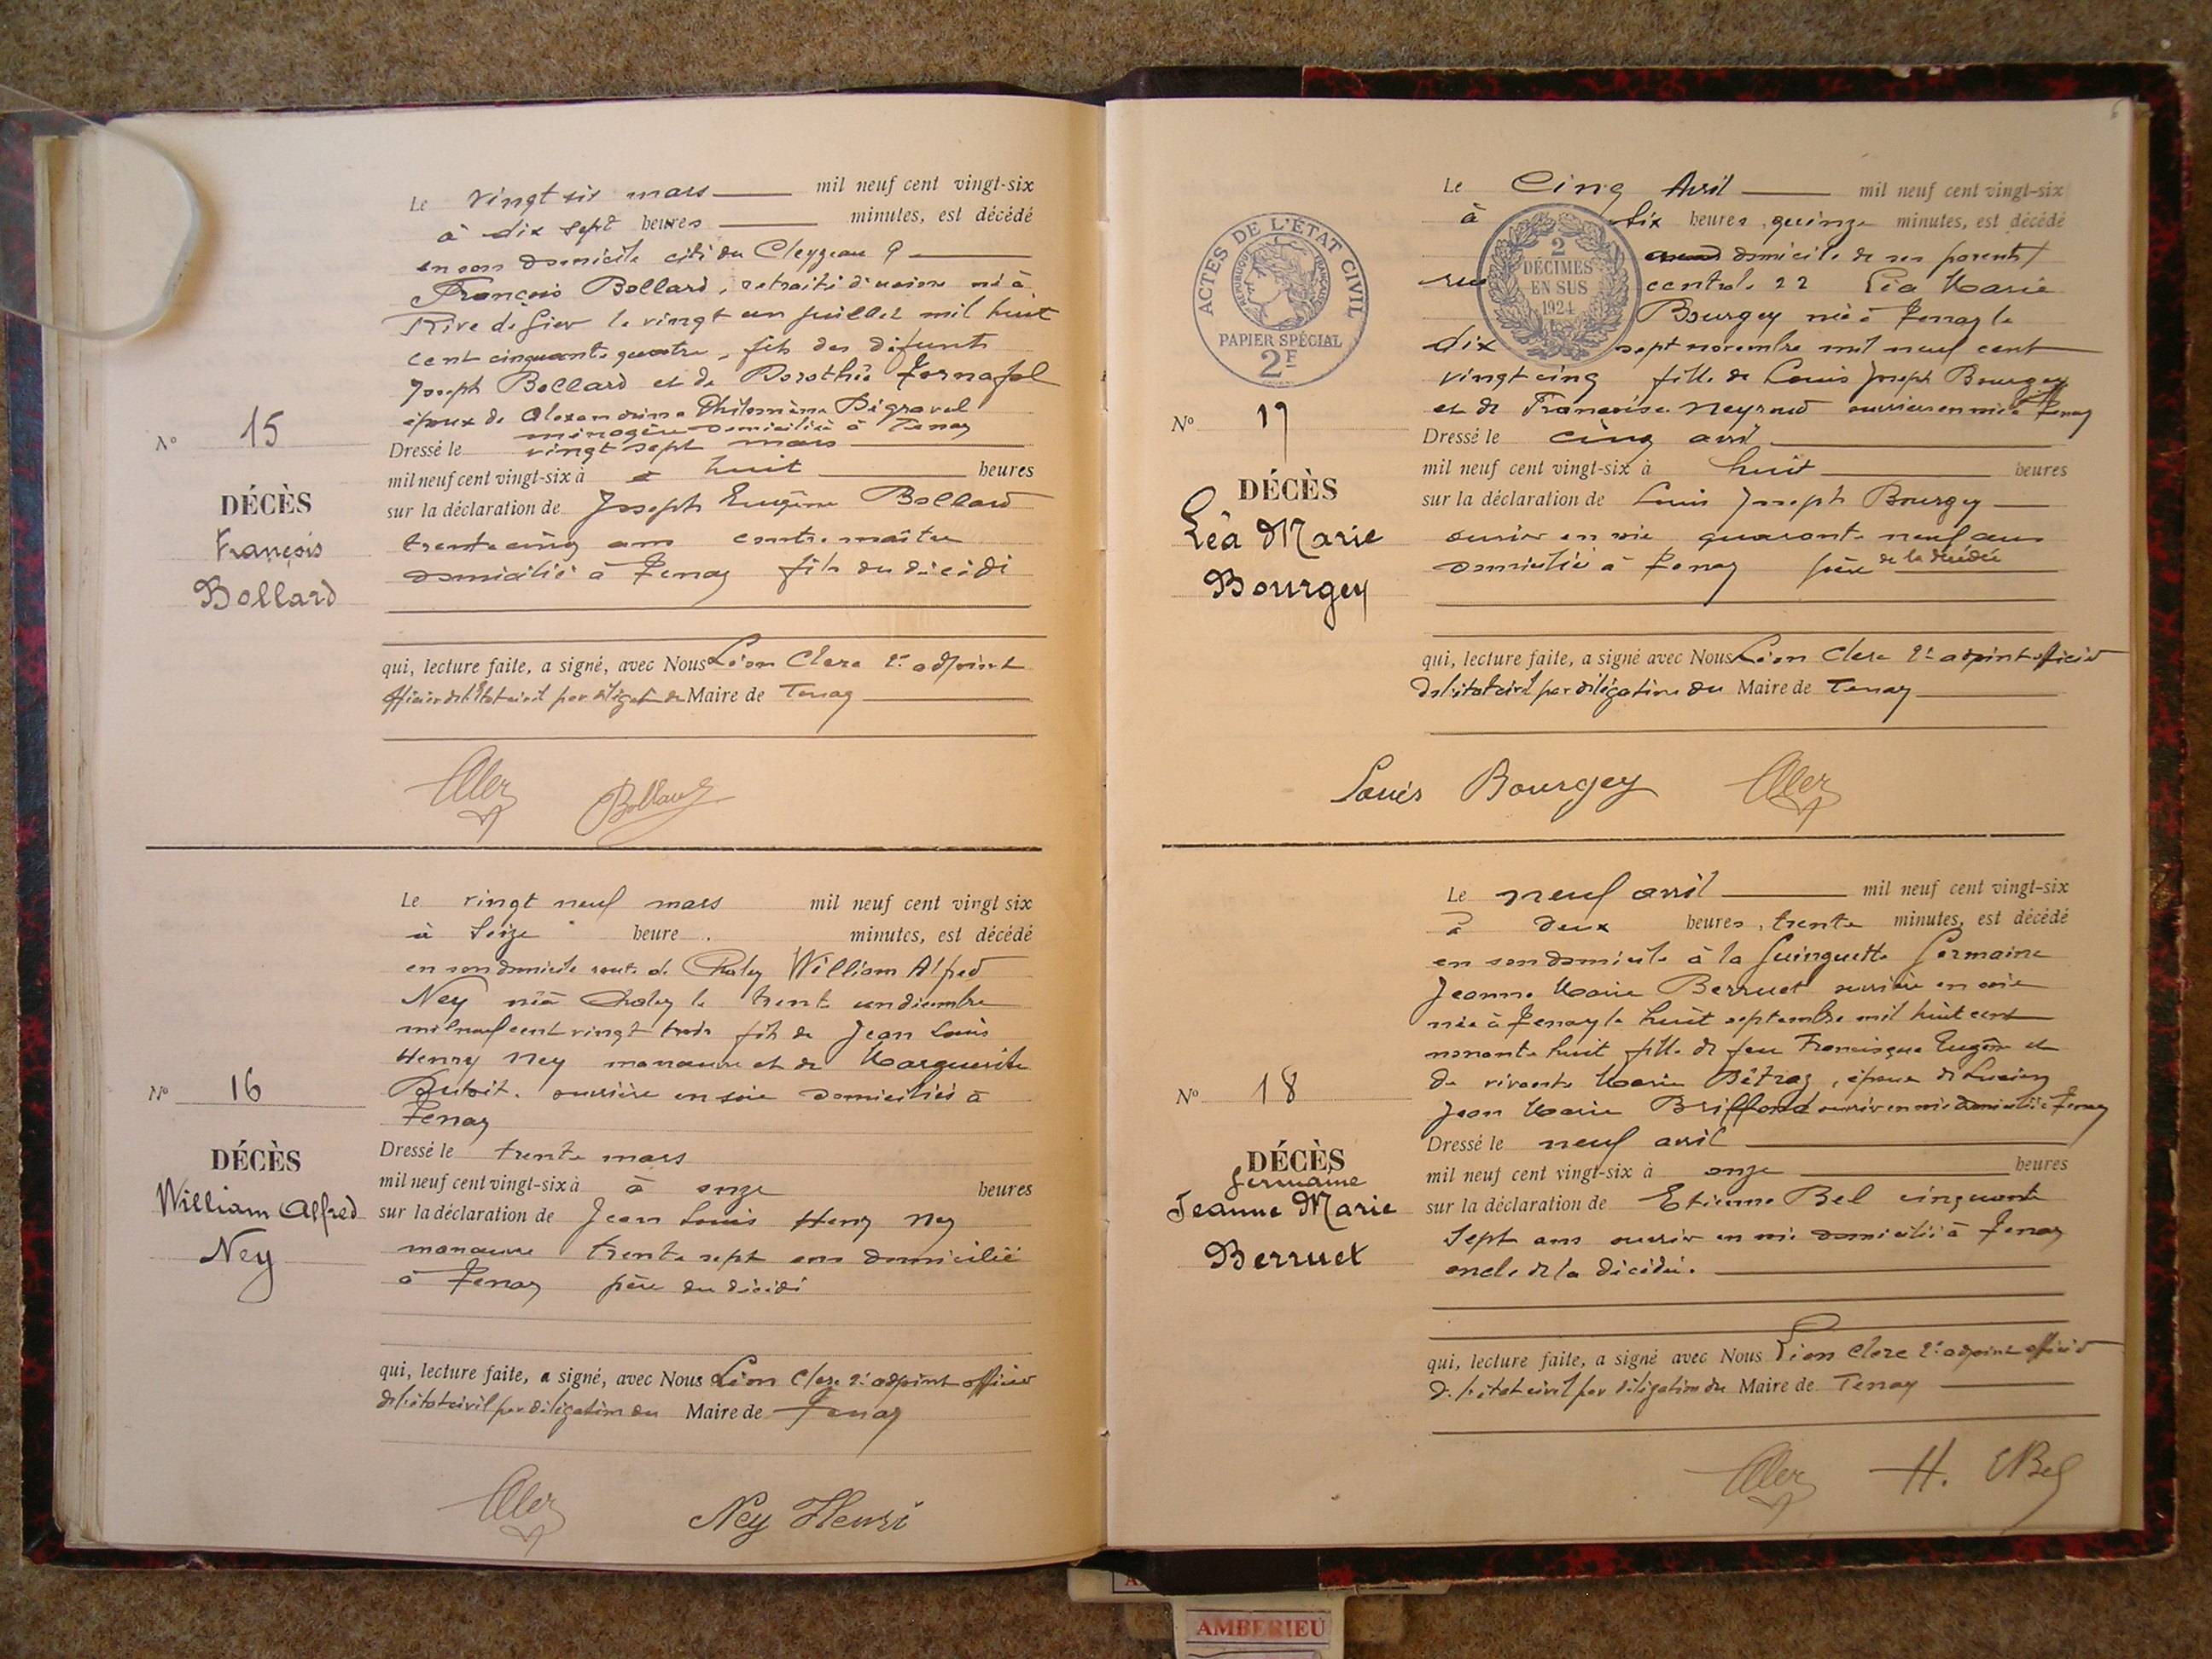 Le vingt six mars mil neuf cent vingt-six
à dix sept heures minutes, est décédé
en son domicile cité du Cleyzeau 9
François Bollard, retraité d'usine né à
Rive de Gier le vingt un juillet mil huit
cent cinquante quatre, fils des défunts
Joseph Bollard et de Dorothée
époux de Alexandrine Philomène Dégravel
ménagère domiciliée à Tenay
N° 15
Dressé le vingt sept mars
mil neuf cent vingt-six à à huit heures
DÉCÈS
François
Bollard
sur la déclaration de Joseph Eugène Bollard
trente cinq ans contre-maître
domicilié à Tenay fils du décédé
qui, lecture faite, a signé, avec Nous Léon Clerc 2e adjoint
officier de l'état civil par délégat. du Maire de Tenay
Bollard
Le vingt neuf mars mil neuf cent vingt six
à seize heure minutes, est décédé
en son domicile route de Chaley William Alfred
Ney né à Chaley le trente un décembre
mil neuf cent vingt trois fils de Jean Louis
Henry Ney manœuvre et de Marguerite
Dutoit. ouvrière en soie domiciliés à
Tenay
N° 16
DÉCÈS
William Alfred
Ney
Dressé le trente mars
mil neuf cent vingt-six à à onze heures
sur la déclaration de Jean Louis Henry Ney
manœuvre trente sept ans domicilié
à Tenay père du décédé
qui, lecture faite, a signé, avec Nous Léon Clerc 2e adjoint officier
de l'état civil par délégation du Maire de Tenay
Ney Henri
ACTES DE L'ÉTAT CIVIL
RÉPUBLIQUE FRANÇAISE
PAPIER SPÉCIAL
2F
2
DÉCIMES
EN SUS
1924
Le Cinq Avril mil neuf cent vingt-six
à six heures, quinze minutes, est décédé
domicile de ses parents
rue centrale 22 Léa Marie
Bourgey née à Tenay le
dix sept novembre mil neuf cent
vingt cinq fille de Louis Joseph Bourgey
et de Françoise Neyroud ouvriers en soie à Tenay
N° 17
DÉCÈS
Léa Marie
Bourgey
Dressé le cinq avril
mil neuf cent vingt-six à huit heures
sur la déclaration de Louis Joseph Bourgey
ouvrier en soie quarante neuf ans
domicilié à Tenay père de la décédée
qui, lecture faite, a signé avec Nous Léon Clerc 2e adjoint officier
de l'état civil par délégation du Maire de Tenay
Louis Bourgey
Le neuf avril mil neuf cent vingt-six
à deux heures, trente minutes, est décédé
en son domicile à la Guinguette Germaine
Jeanne Marie Berruet ouvrière en soie
née à Tenay le huit septembre mil huit cent
nonante huit fille de feu Francisque Eugène et
de vivante Marie Bétraz, épouse de Lucien
Jean Marie Briffond ouvrier en soie domicilié à Tenay
N° 18
DÉCÈS
Germaine
Jeanne Marie
Berruet
Dressé le neuf avril
mil neuf cent vingt-six à onze heures
sur la déclaration de Etienne Bel cinquante
sept ans ouvrier en soie domicilié à Tenay
oncle de la décédée.
qui, lecture faite, a signé avec Nous Léon Clerc 2e adjoint officier
de l'état civil par délégation du Maire de Tenay
H. EBel
AMBERIEU